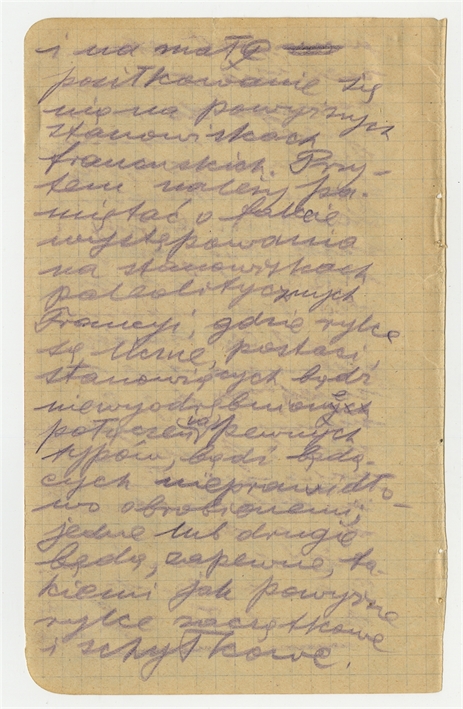 i na małe
posiłkowanie się
nio na powyższych
stanowiskach
francuskich. Przy-
tem należy pa-
miętać o fakcie
występowania
na stanowiskach
paleolitycznych
Francyi, gdzie rylce
są liczne, postaci,
stanowiących bądź
niewyodrębnione
połączenia pewnych
typów, bądź będą-
cych nieprawidło-
wo obrobionemi;
jedne lub drugie
będą, zapewne, ta-
kiemi jak powyższe
rylce zaczątkowe
i schyłkowe.